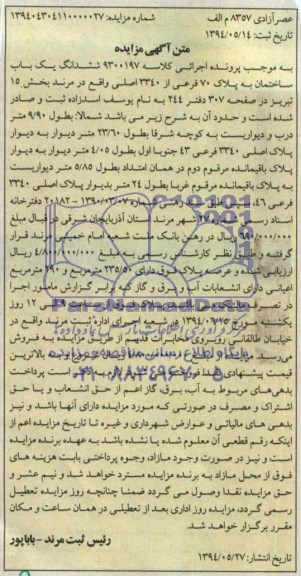 عصرآزادی ۸۳۵۷ م الف شماره مزایده: ۱۳۹۴۰۴۳۰۴۱۱۰۰۰۰۰۲۷
تاریخ ثبت: ۱۳۹۴/۰۵/۱۴
متن آگهی مزایده
به موجب پرونده اجرائی کلاسه ۹۳۰۰۱۹۷ ششدانگ یک باب
ساختمان به پلاک ۷۰ فرعی از ۳۳۴۰ اصلی واقع در مرند بخش ۱۵
تبریز در صفحه ۳۰۷ دفتر ۲۴۴ به نام یوسف اسدزاده ثبت و صادر
شده است و حدود آن به شرح زیر می باشد شمالا: بطول ۹/۹۰ متر
درب و دیواریست به کوچه شرقا بطول ۲۳/۶۰ متر دیوار به دیوار
پلاک اصلی ۳۳۴۰ فرعی ۴۳ جنوبا اول بطول ۴/۰۵ متر دیوار به دیوار
پلاک باقیمانده مرقوم دوم در همان امتداد بطول ۵/۸۵ متر دیواریست
به پلاک باقیمانده مرقوم غربا بطول ۲۴ متر بدیوار پلاک اصلی ۳۳۴۰
فرعی ۱۴۶ طبق سند ۱۳۹۰/۰۳/۰۷ - ۲۰۱۸۲ دفترخانه
اسناد رسمی ۲۷ شهر مرند استان آذربایجان شرقی در قبال مبلغ
ریال در رهن بانک ملت شعبه امام خمینی مرند قرار
گرفته و طبق نظر کارشناس رسمی به مبلغ ۴/۸۰۰/۰۰۰/۰۰۰ ریال
ارزیابی شده و عرصه پلاک فوق دارای ۲۳۵/۵۰ مترمربع و ۲۹۰ مترمربع
اعیانی دارای انشعابات آب، برق و گاز که برابر گزارش مامور اجرا
در تصرف پلاک فوق ۱۲ روز
یکشنبه مورخ ۱۳۹۴/۰۶/۲۵ اجرای اداره ثبت مرند واقع در
خیابان طالقانی روبروی مخابرات قدیم از طریق مزایده به فروش
می رسد. بالاترین
قیمت پیشنهادی پرداخت
بدهی های مربوط به آب، برق، گاز اعم از حق انشعاب و یا حق
اشتراک و مصرف در صورتی که مورد مزایده دارای آنها باشد و نیز
بدهی های مالیاتی و عوارض شهرداری و غیره تا تاریخ مزایده اعم از
اینکه رقم قطعی آن معلوم شده یا نشده باشد به عهده برنده مزایده
است و نیز در صورت وجود مازاد، وجوه پرداختی بابت هزینه های
فوق از محل مازاد به برنده مزایده مسترد خواهد شد و نیم عشر و
حق مزایده نقدا وصول می گردد ضمنا چنانچه روز مزایده تعطیل
رسمی گردد، مزایده روز اداری بعد از تعطیلی در همان ساعت و مکان
مقرر برگزار خواهد شد.
رئیس ثبت مرند - باباپور
تاریخ انتشار: ۱۳۹۴/۰۵/۲۷
ParsNamadData
گردآوری اطلاعات پارس نماد داده ها
پایگاه اطلاع رسانی مناقصه و مزایده
۰۲۱-۸۸۳۴۹۶۷۰-۵